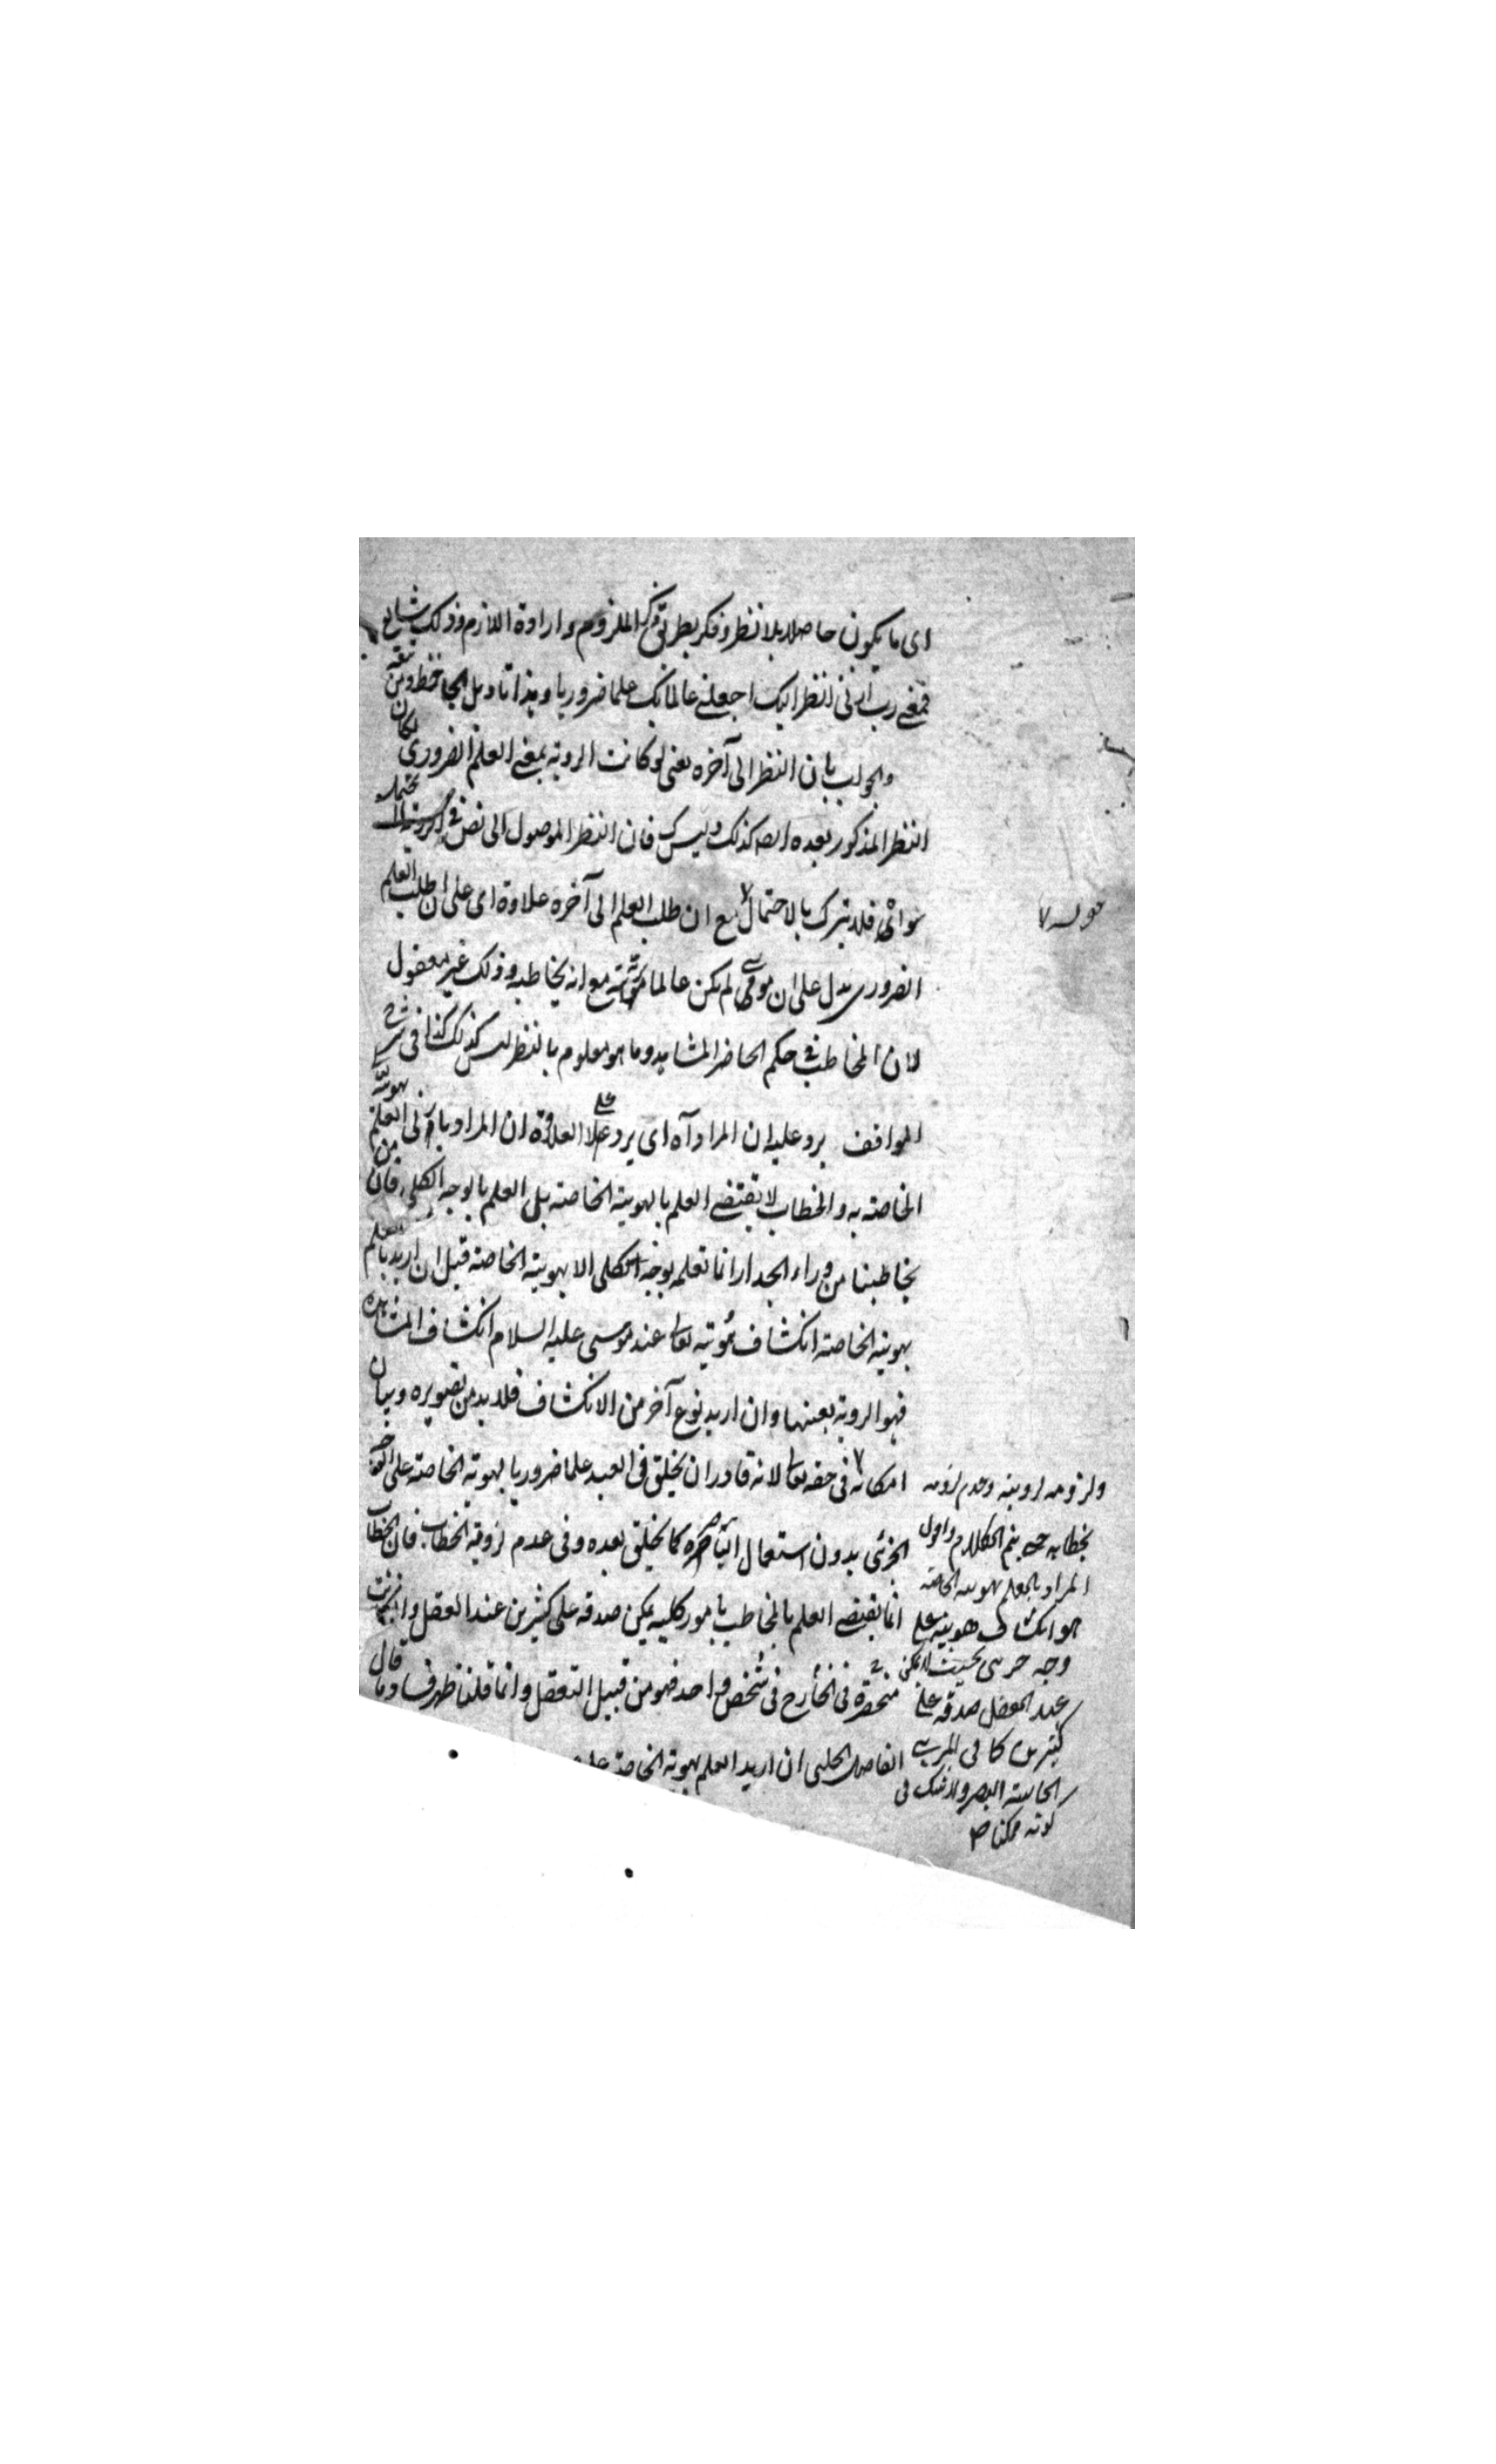 اى ما يكون حاصلا بلا نظر وفكر بطريق ذكر الملزوم وارادة اللازم وذلك شايع
فمعنى رب ارنى انظر اليك اجعلنى عالما بك علما ضروريا وهذا تاويل الجاحظ ومن تبعه
والجواب بان النظر الى آخره يعنى لو كانت الروية بمعنى العلم الضرورى لكان
النظر المذكور بعده ايضا كذلك وليس كذلك فان النظر الموصول الى نص فى الروية لا يحتمل
سواه فلا يترك بالاحتمال مع ان طلب العلم الى آخره علاوة اى على ان طلب العلم
الضرورى يدل على ان موسى لم يكن عالما بربه مع انه يخاطبه وذلك غير معقول
لان المخاطب فى حكم الحاضر المشاهد وما هو معلوم بالنظر ليس كذلك كذا فى شرح
المواقف يرد عليه ان المراد آه اى يرد على العلاوة ان المراد بارنى العلم بهويته
الخاصة به والخطاب لا يقتضى العلم بالهوية الخاصة بل العلم بالوجه الكلى فان من
يخاطبنا من وراء الجدار انما نعلمه بوجه الكلى لا بهويته الخاصة قيل ان اريد بالعلم
بهويته الخاصة انكشاف هويته تعالى عند موسى عليه السلام انكشاف المشاهدة
فهو الروية بعينها وان اريد نوع آخر من الانكشاف فلا بد من تصويره وبيان
امكانه فى حقه تعالى لانه قادر ان يخلق فى العبد علما ضروريا بهويته الخاصة على الوجه
الجزئى بدون استعمال الباصرة كما يخلق بعده وفى عدم لزومه الخطاب فان الخطاب
انما يقتضى العلم بالمخاطب بامور كلية يمكن صدقه على كثيرين عند العقل وان كانت
منحصرة فى الخارج فى شخص واحد فهو من قبيل التعقل وانما قلنا ظهر فساد ما قال
الفاضل الجلبى ان اريد العلم بهويته الخاصة
قوله
ولزومه لرويته وعدم لزومه
بخطابه حتى يتم الكلام واقول
المراد بالعلم بهويته الخاصة
هو انكشاف هويته على
وجه جزئى بحيث لا يمكن
عند العقل صدقه على
كثيرين كما فى المرئى
بحاسة البصر ولا شك فى
كونه ممكنا